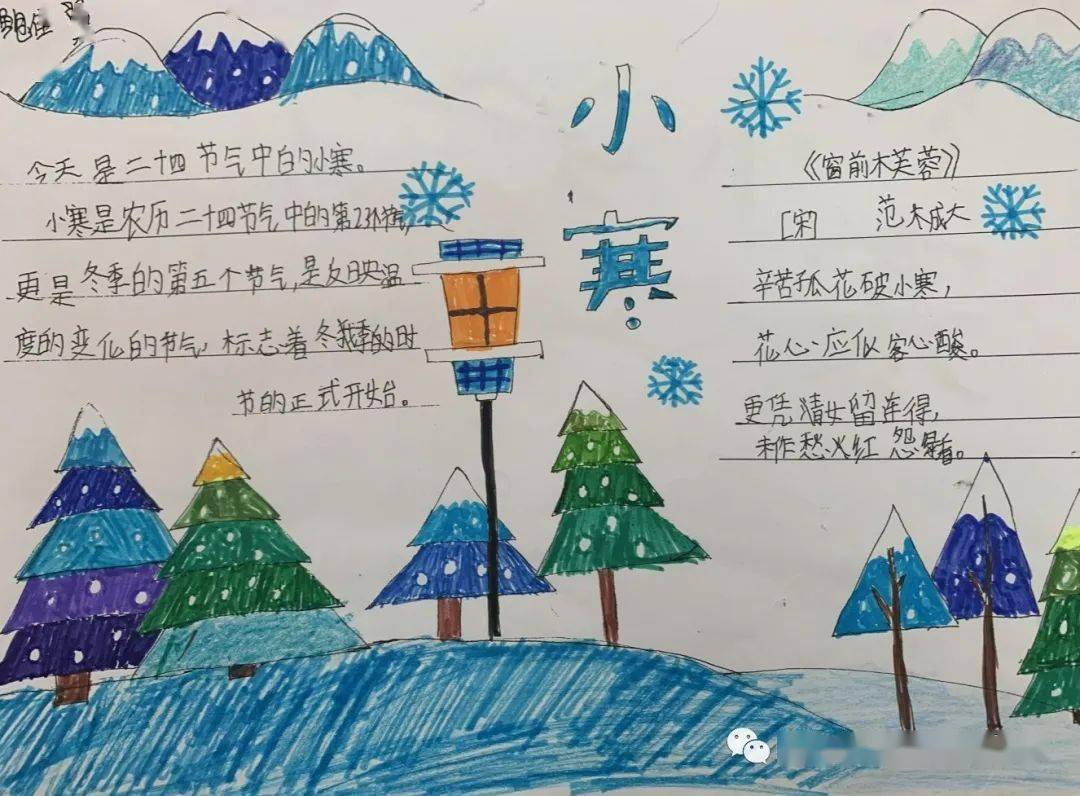 小寒
今天是二十四节气中的小寒。
小寒是农历二十四节气中的第23个节气,
更是冬季的第五个节气,是反映温
度的变化的节气,标志着冬季的时
节的正式开始。
《窗前木芙蓉》
[宋] 范成大
辛苦孤花破小寒,
花心应似客心酸。
更凭清女留连得,
未作愁火红怨